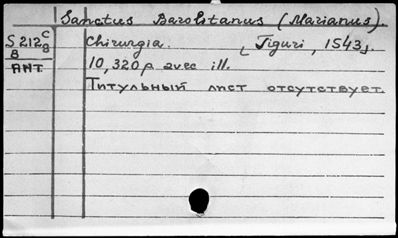 Sanctus Barolitanus (Marianus).
S 212 c/8 Chirurgia. [Tiguri, 1543].
8 10, 320 p avec ill.
АНТ. Титульный лист отсутствует.